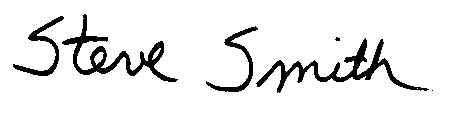 Steve Smith